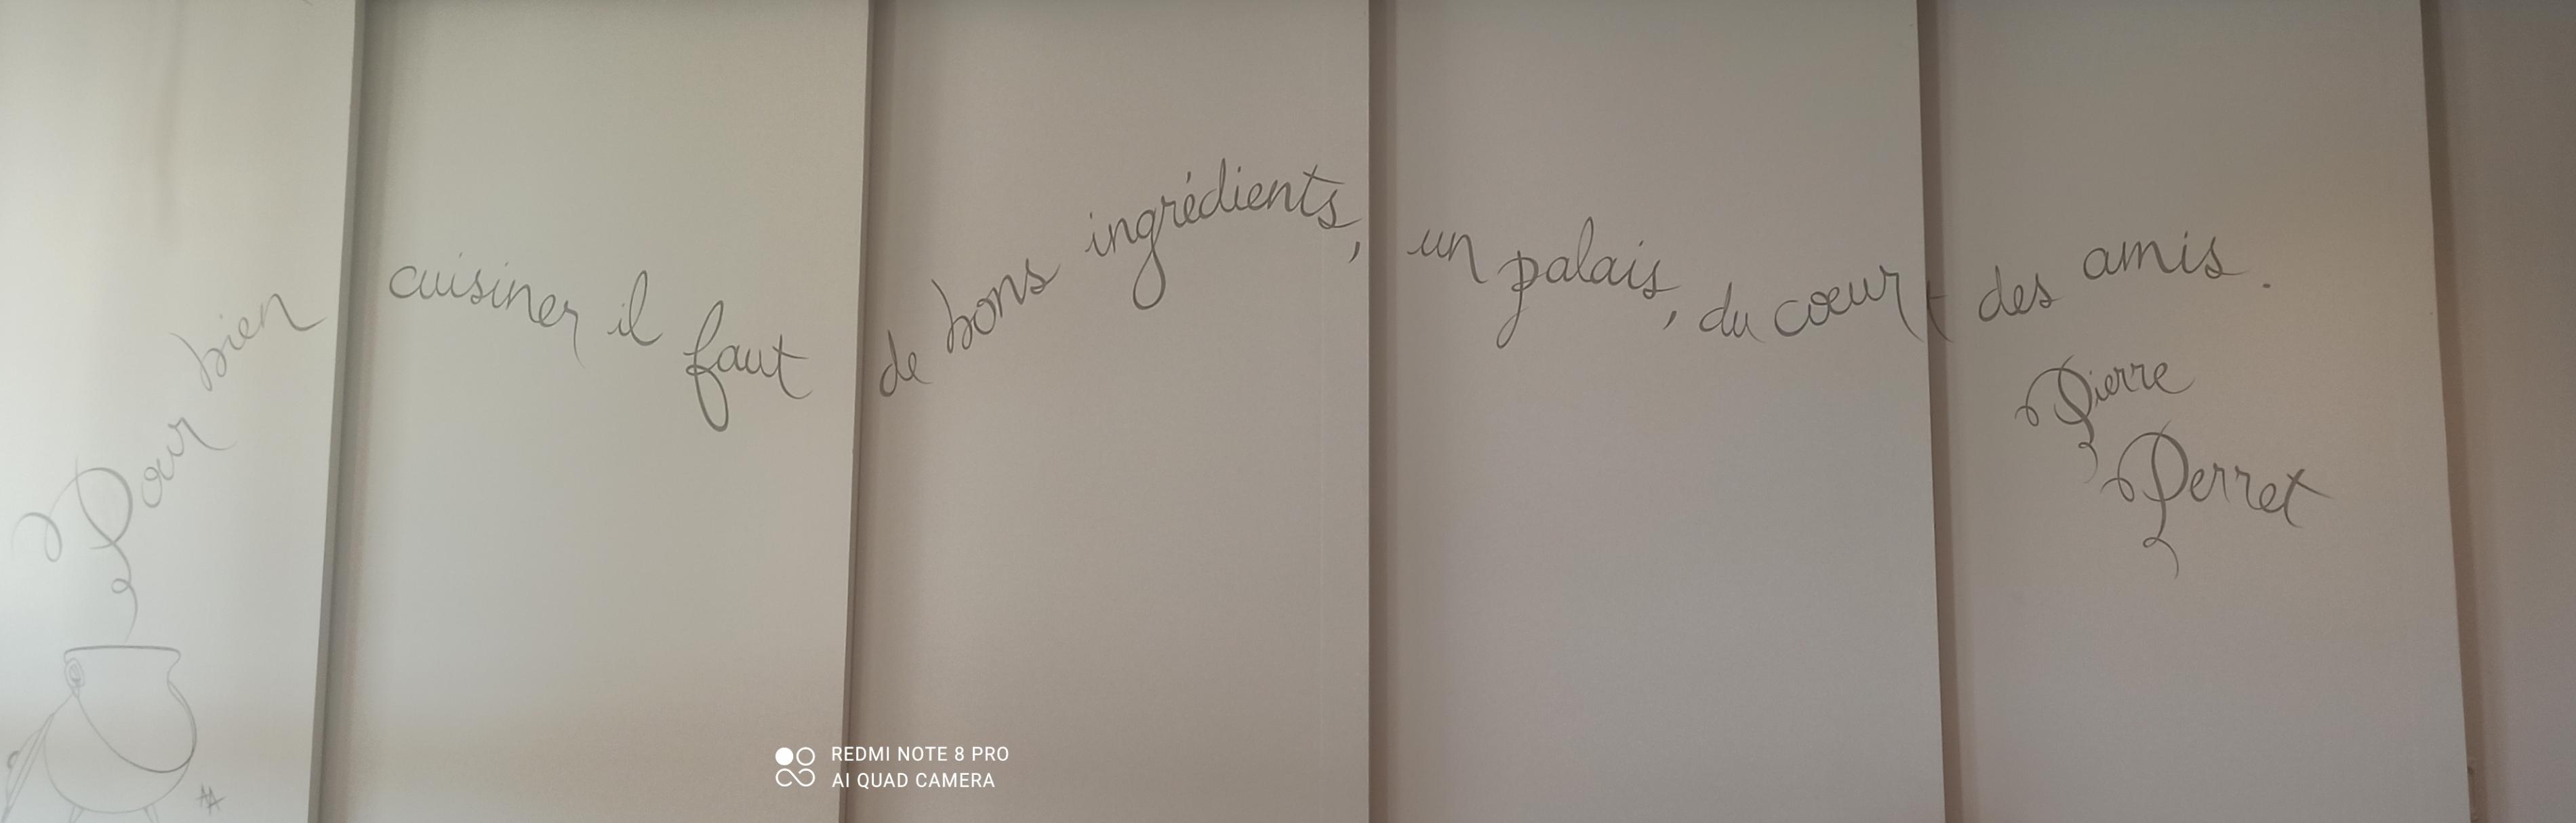 Pour bien cuisiner il faut de bons ingrédients, un palais, du cœur + des amis.
Pierre
Perret
AA
REDMI NOTE 8 PRO
AI QUAD CAMERA